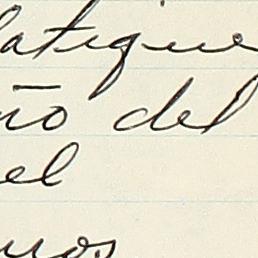 latigue
ño del
el
nos